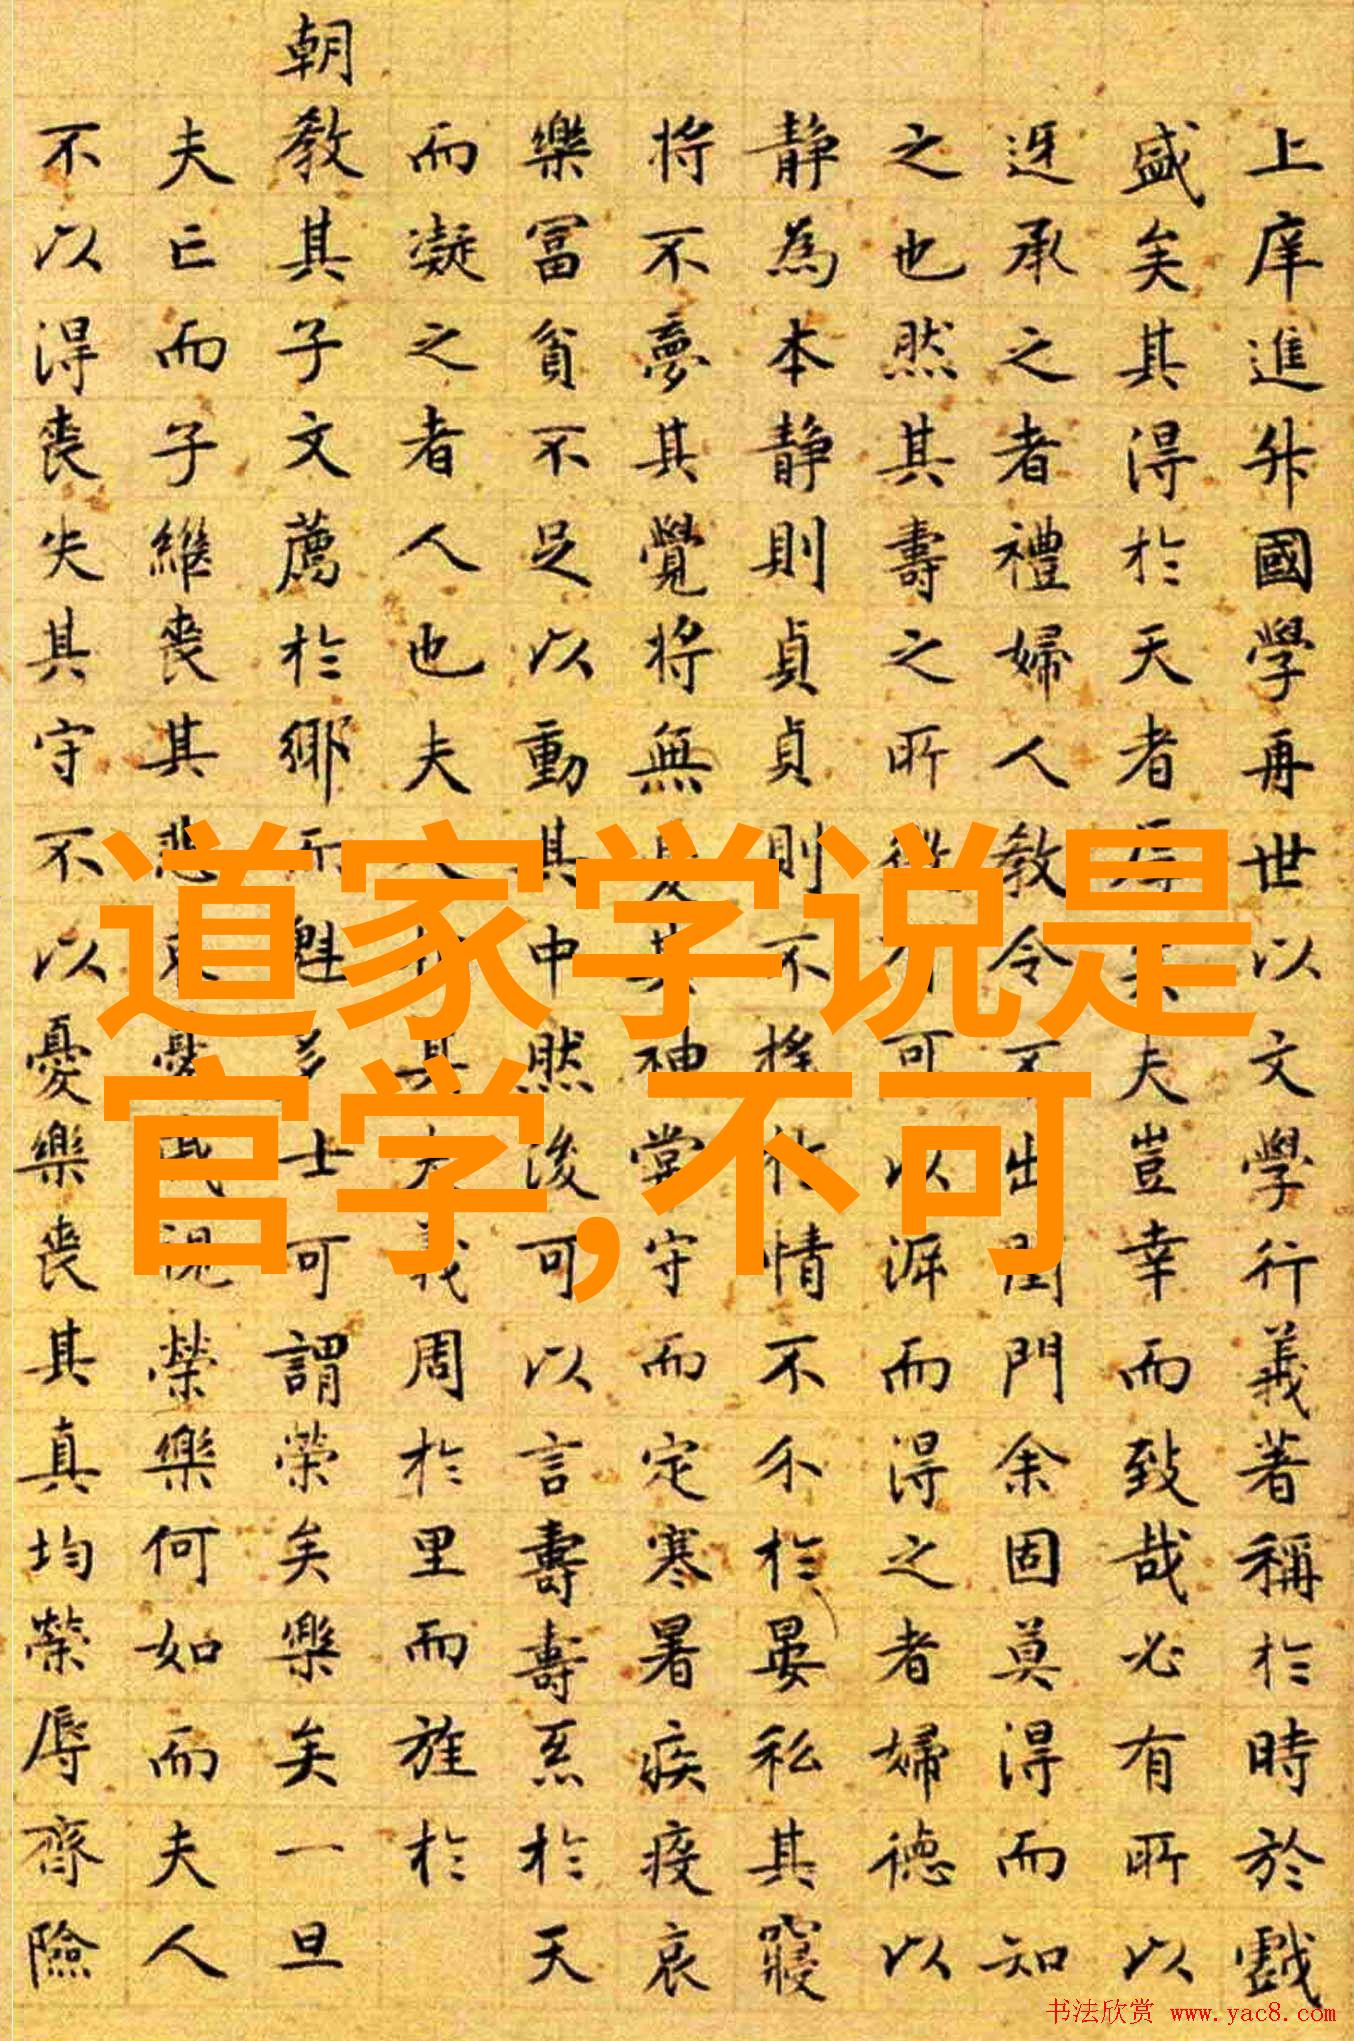 道家学说是
官学,不可
上庠進升國學再世以文學行義著稱於時於戲
盛矣其得於天者厚矣夫豈幸而致哉必有所以
迓承之者禮婦人教令不出閨門余固莫得而知
之也然其壽之所可以涯而得之者婦德以
静為本静則貞貞則不搖於情不尒於晏私其寢
將不夢其覺將無其神當守而定寒暑疾疫哀
樂富貧不足以動其中然後可以言壽壽於天
而凝之者人也夫人其夫義周於里而旌於
朝教其子文薦於鄉而魁多士可謂榮矣樂矣一旦
夫亡而子繼喪其悲哀憂戚視榮樂何如而夫人
不以得喪失其守不以憂樂喪其真均榮辱齊險
书法欣赏 www.yac8.com